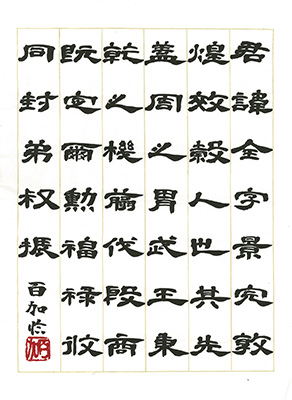 君諱全字景完敦
煌效穀人也其先
蓋周之胄武王秉
乾之機翦伐殷商
既定爾勳福祿攸
同封弟叔振
百加临